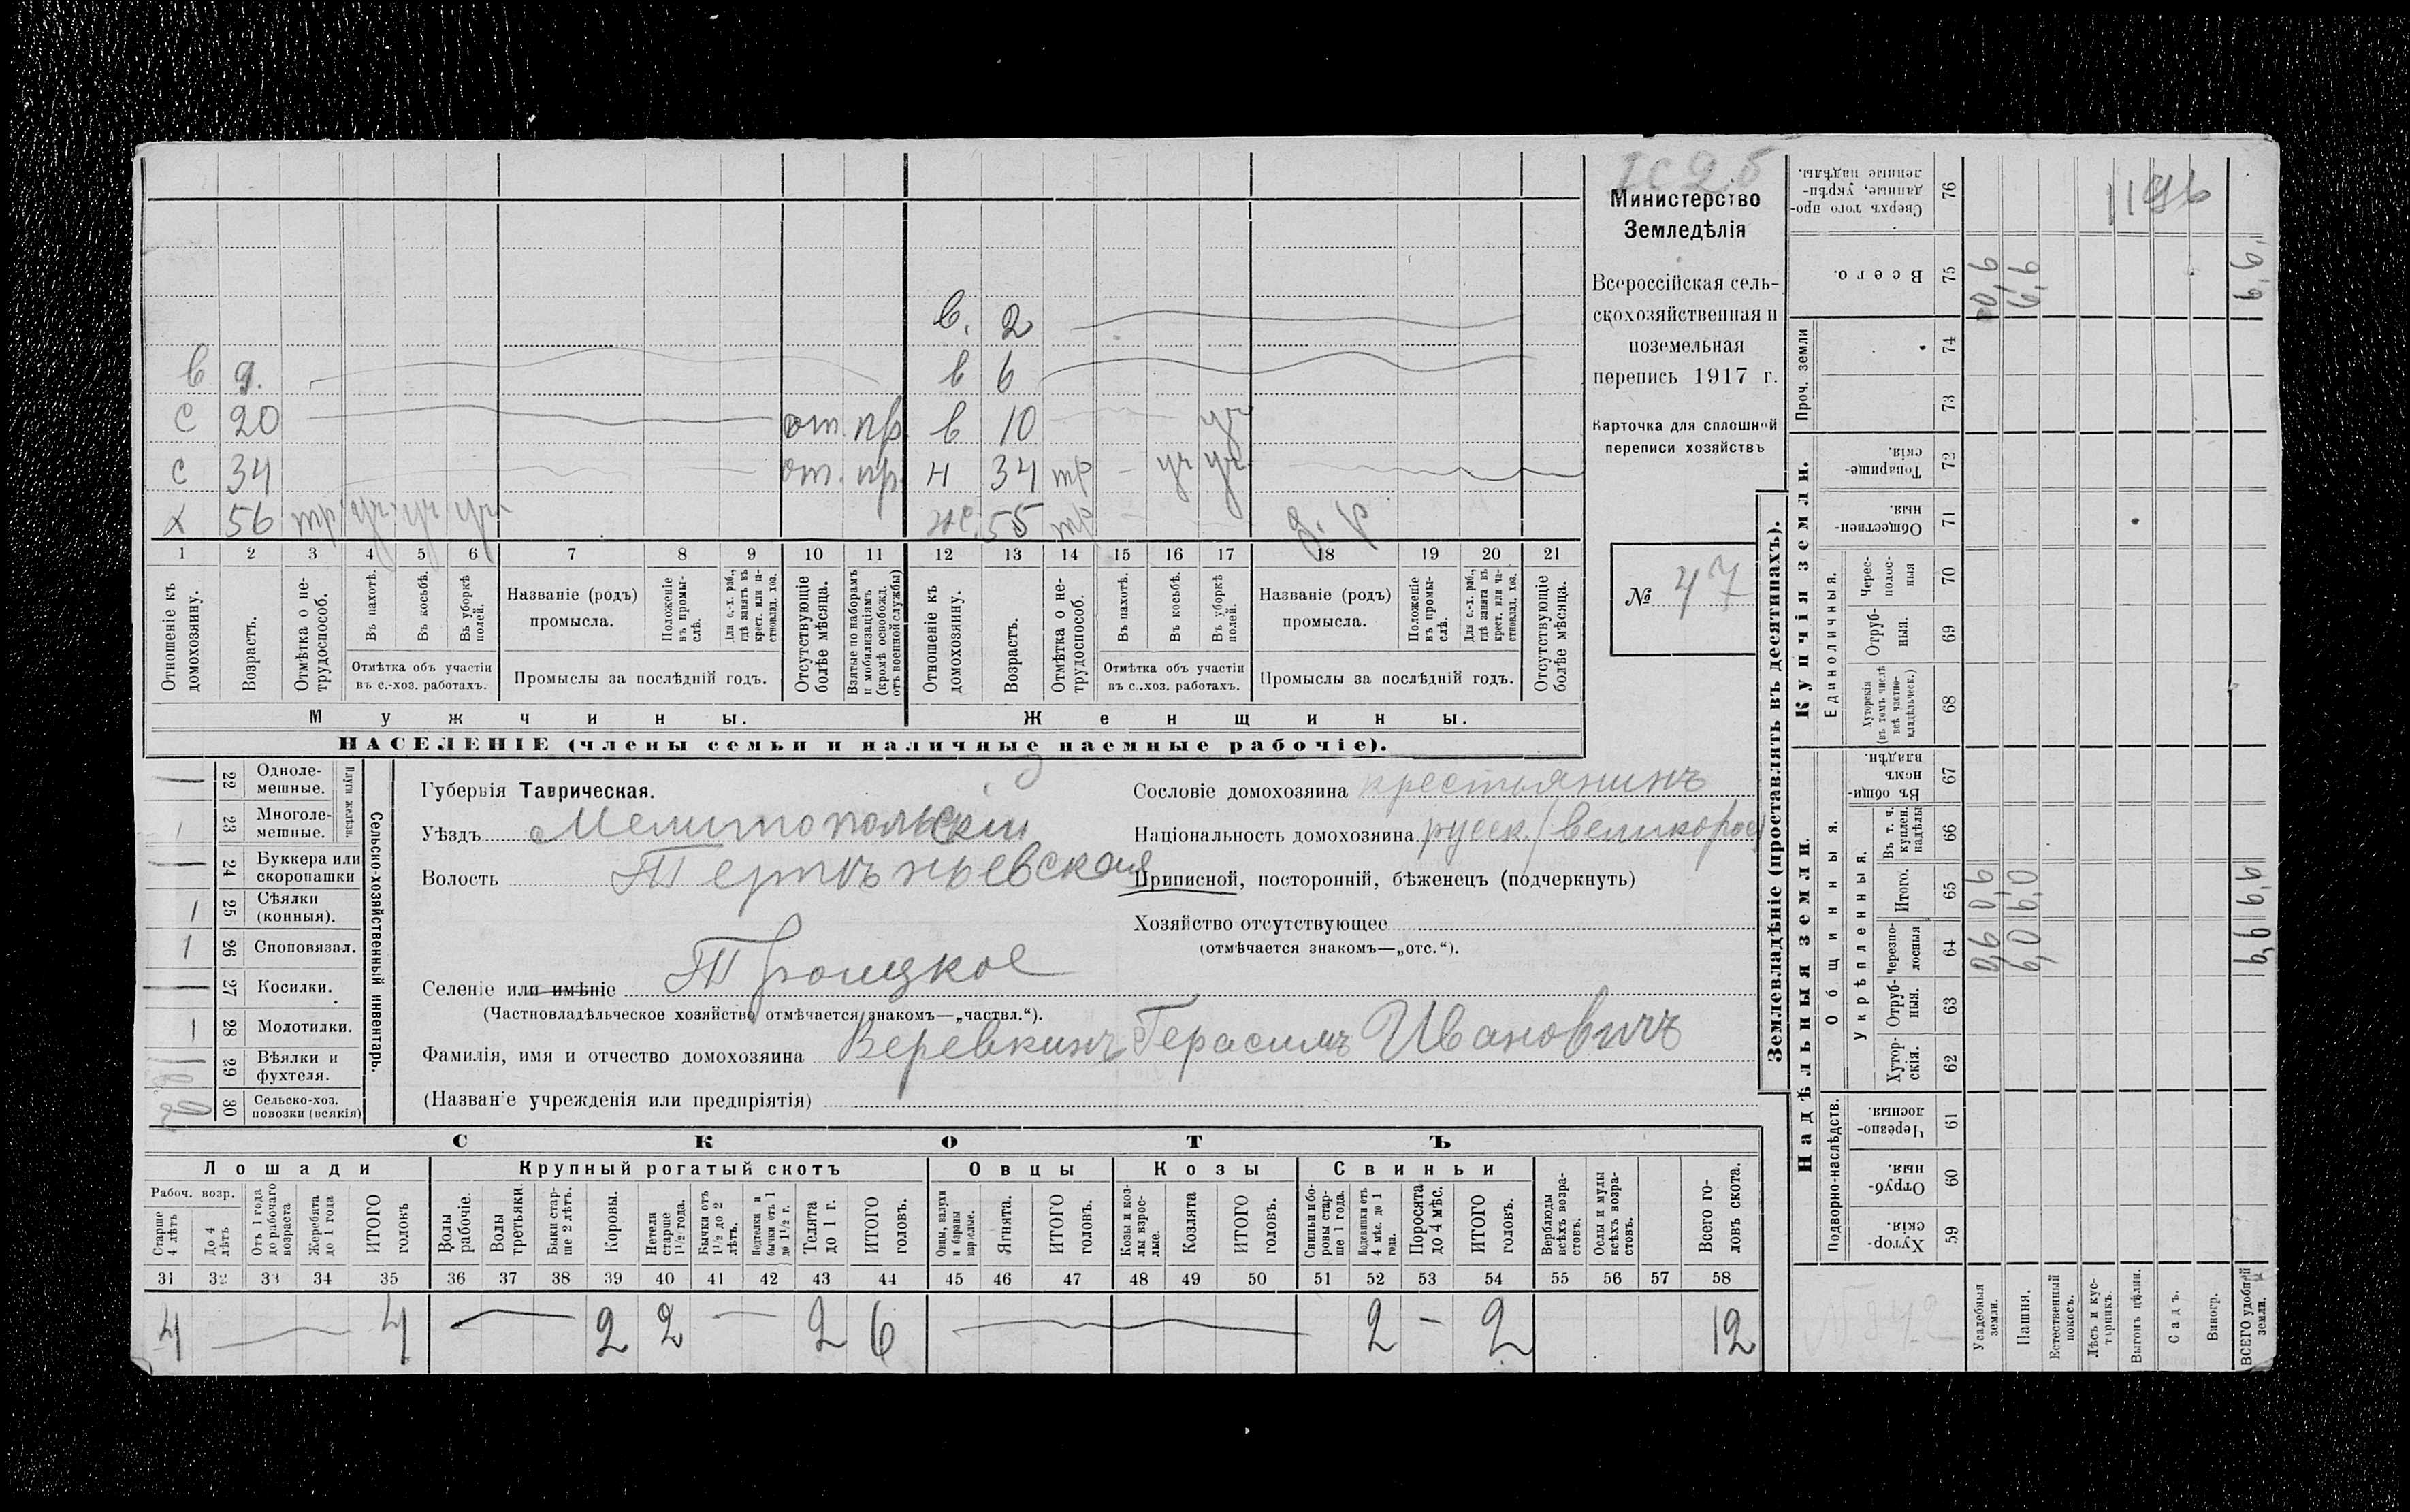 Министерство
Земледѣлія
Всероссійская сель-
скохозяйственная и
поземельная
перепись 1917 г.
Карточка для сплошной
переписи хозяйствъ
№ 47
в. 2
в 9. в 6
с 20 от. пр. в 10 уч
с 34 от. пр. н 34 тр – уч уч.
х 56 тр уч уч уч ж. 55 тр – д. р.
1 2 3 4 5 6 7 8 9 10 11 12 13 14 15 16 17 18 19 20 21
Отношеніе къ домохозяину.
Возрастъ.
Отмѣтка о не-трудоспособ.
Въ пахотѣ.
Въ косьбѣ.
Въ уборкѣ полей.
Отмѣтка объ участіи въ с.-хоз. работахъ.
Названіе (родъ) промысла.
Положеніе въ промы-слѣ.
Для с.-х. раб., гдѣ занятъ въ крест. или ча-стновлад. хоз.
Промыслы за послѣдній годъ.
Отсутствующіе болѣе мѣсяца.
Взятые по наборамъ и мобилизаціямъ (кромѣ освобожд. отъ военной службы)
Отношеніе къ домохозяину.
Возрастъ.
Отмѣтка о не-трудоспособ.
Въ пахотѣ.
Въ косьбѣ.
Въ уборкѣ полей.
Отмѣтка объ участіи въ с.-хоз. работахъ.
Названіе (родъ) промысла.
Положеніе въ промы-слѣ.
Для с.-х. раб., гдѣ занята въ крест. или ча-стновлад. хоз.
Промыслы за послѣдній годъ.
Отсутствующіе болѣе мѣсяца.
Мужчины. Женщины.
НАСЕЛЕНІЕ (члены семьи и наличные наемные рабочіе).
Сельско-хозяйственный инвентарь.
Плуги желѣзн.
22 Одноле-мешные.
23 Многоле-мешные.
24 Буккера или скоропашки
1 25 Сѣялки (конныя).
1 26 Сноповязал.
27 Косилки.
1 28 Молотилки.
29 Вѣялки и фухтеля.
30 Сельско-хоз. повозки (всякія)
Губернія Таврическая.
Уѣздъ Мелитопольскій
Волость
Селеніе или имѣніе Троицкое
(Частновладѣльческое хозяйство отмѣчается знакомъ—„частвл.“).
Фамилія, имя и отчество домохозяина Веревкинъ Герасимъ Ивановичъ
(Названіе учрежденія или предпріятія)
Сословіе домохозяина крестьянинъ
Національность домохозяина русск. (великорос
Приписной, посторонній, бѣженецъ (подчеркнуть)
Хозяйство отсутствующее
(отмѣчается знакомъ—„отс.“).
СКОТЪ
Лошади Крупный рогатый скотъ Овцы Козы Свиньи
Рабоч. возр.
Старше 4 лѣтъ
До 4 лѣтъ
Отъ 1 года до рабочаго возраста
Жеребята до 1 года
ИТОГО головъ
Волы рабочіе.
Волы третьяки.
Быки стар-ше 2 лѣтъ.
Коровы.
Нетели старше 1½ года.
Бычки отъ 1½ до 2 лѣтъ.
Подтелки и бычки отъ 1 до 1½ г.
Телята до 1 г.
ИТОГО головъ.
Овцы, валухи и бараны взрослые.
Ягнята.
ИТОГО головъ.
Козы и коз-лы взрос-лые.
Козлята
ИТОГО головъ.
Свиньи бо-ровы стар-ше 1 года.
Подсвинки отъ 4 мѣс. до 1 года.
Поросята до 4 мѣс.
ИТОГО головъ.
Верблюды всѣхъ возра-стовъ.
Ослы и мулы всѣхъ возра-стовъ.
Всего го-ловъ скота.
31 32 33 34 35 36 37 38 39 40 41 42 43 44 45 46 47 48 49 50 51 52 53 54 55 56 57 58
4 — 4 — 2 2 — 2 6 — 2 – 2 12
Землевладѣніе (проставлять въ десятинахъ).
Купчія земли.
Надѣльныя земли.
Сверхъ того про-данные, укрѣп-ленные надѣлы. 76
Всего. 75
Проч. земли 74 73
Товарище-скія. 72
Обществен-ныя. 71
Единоличныя.
Черес-полос-ныя 70
Отруб-ныя. 69
Хуторскія (въ томъ числѣ всѣ частно-владѣльческ.) 68
Общинныя.
Въ общин-номъ владѣн. 67
Укрѣпленныя.
Въ т. ч. куплен. надѣлы 66
Итого. 65
Черезпо-лосныя 64
Отруб-ныя. 63
Хутор-скія. 62
Подворно-наслѣдств.
Черезпо-лосныя. 61
Отруб-ныя. 60
Хутор-скія. 59
Усадебныя земли. 0,6 0,6
Пашня.
Естественный покосъ.
Лѣсъ и кус-тарникъ.
Выгонъ цѣлин.
Садъ.
Виногр.
ВСЕГО удобной земли. 9,9 9,9